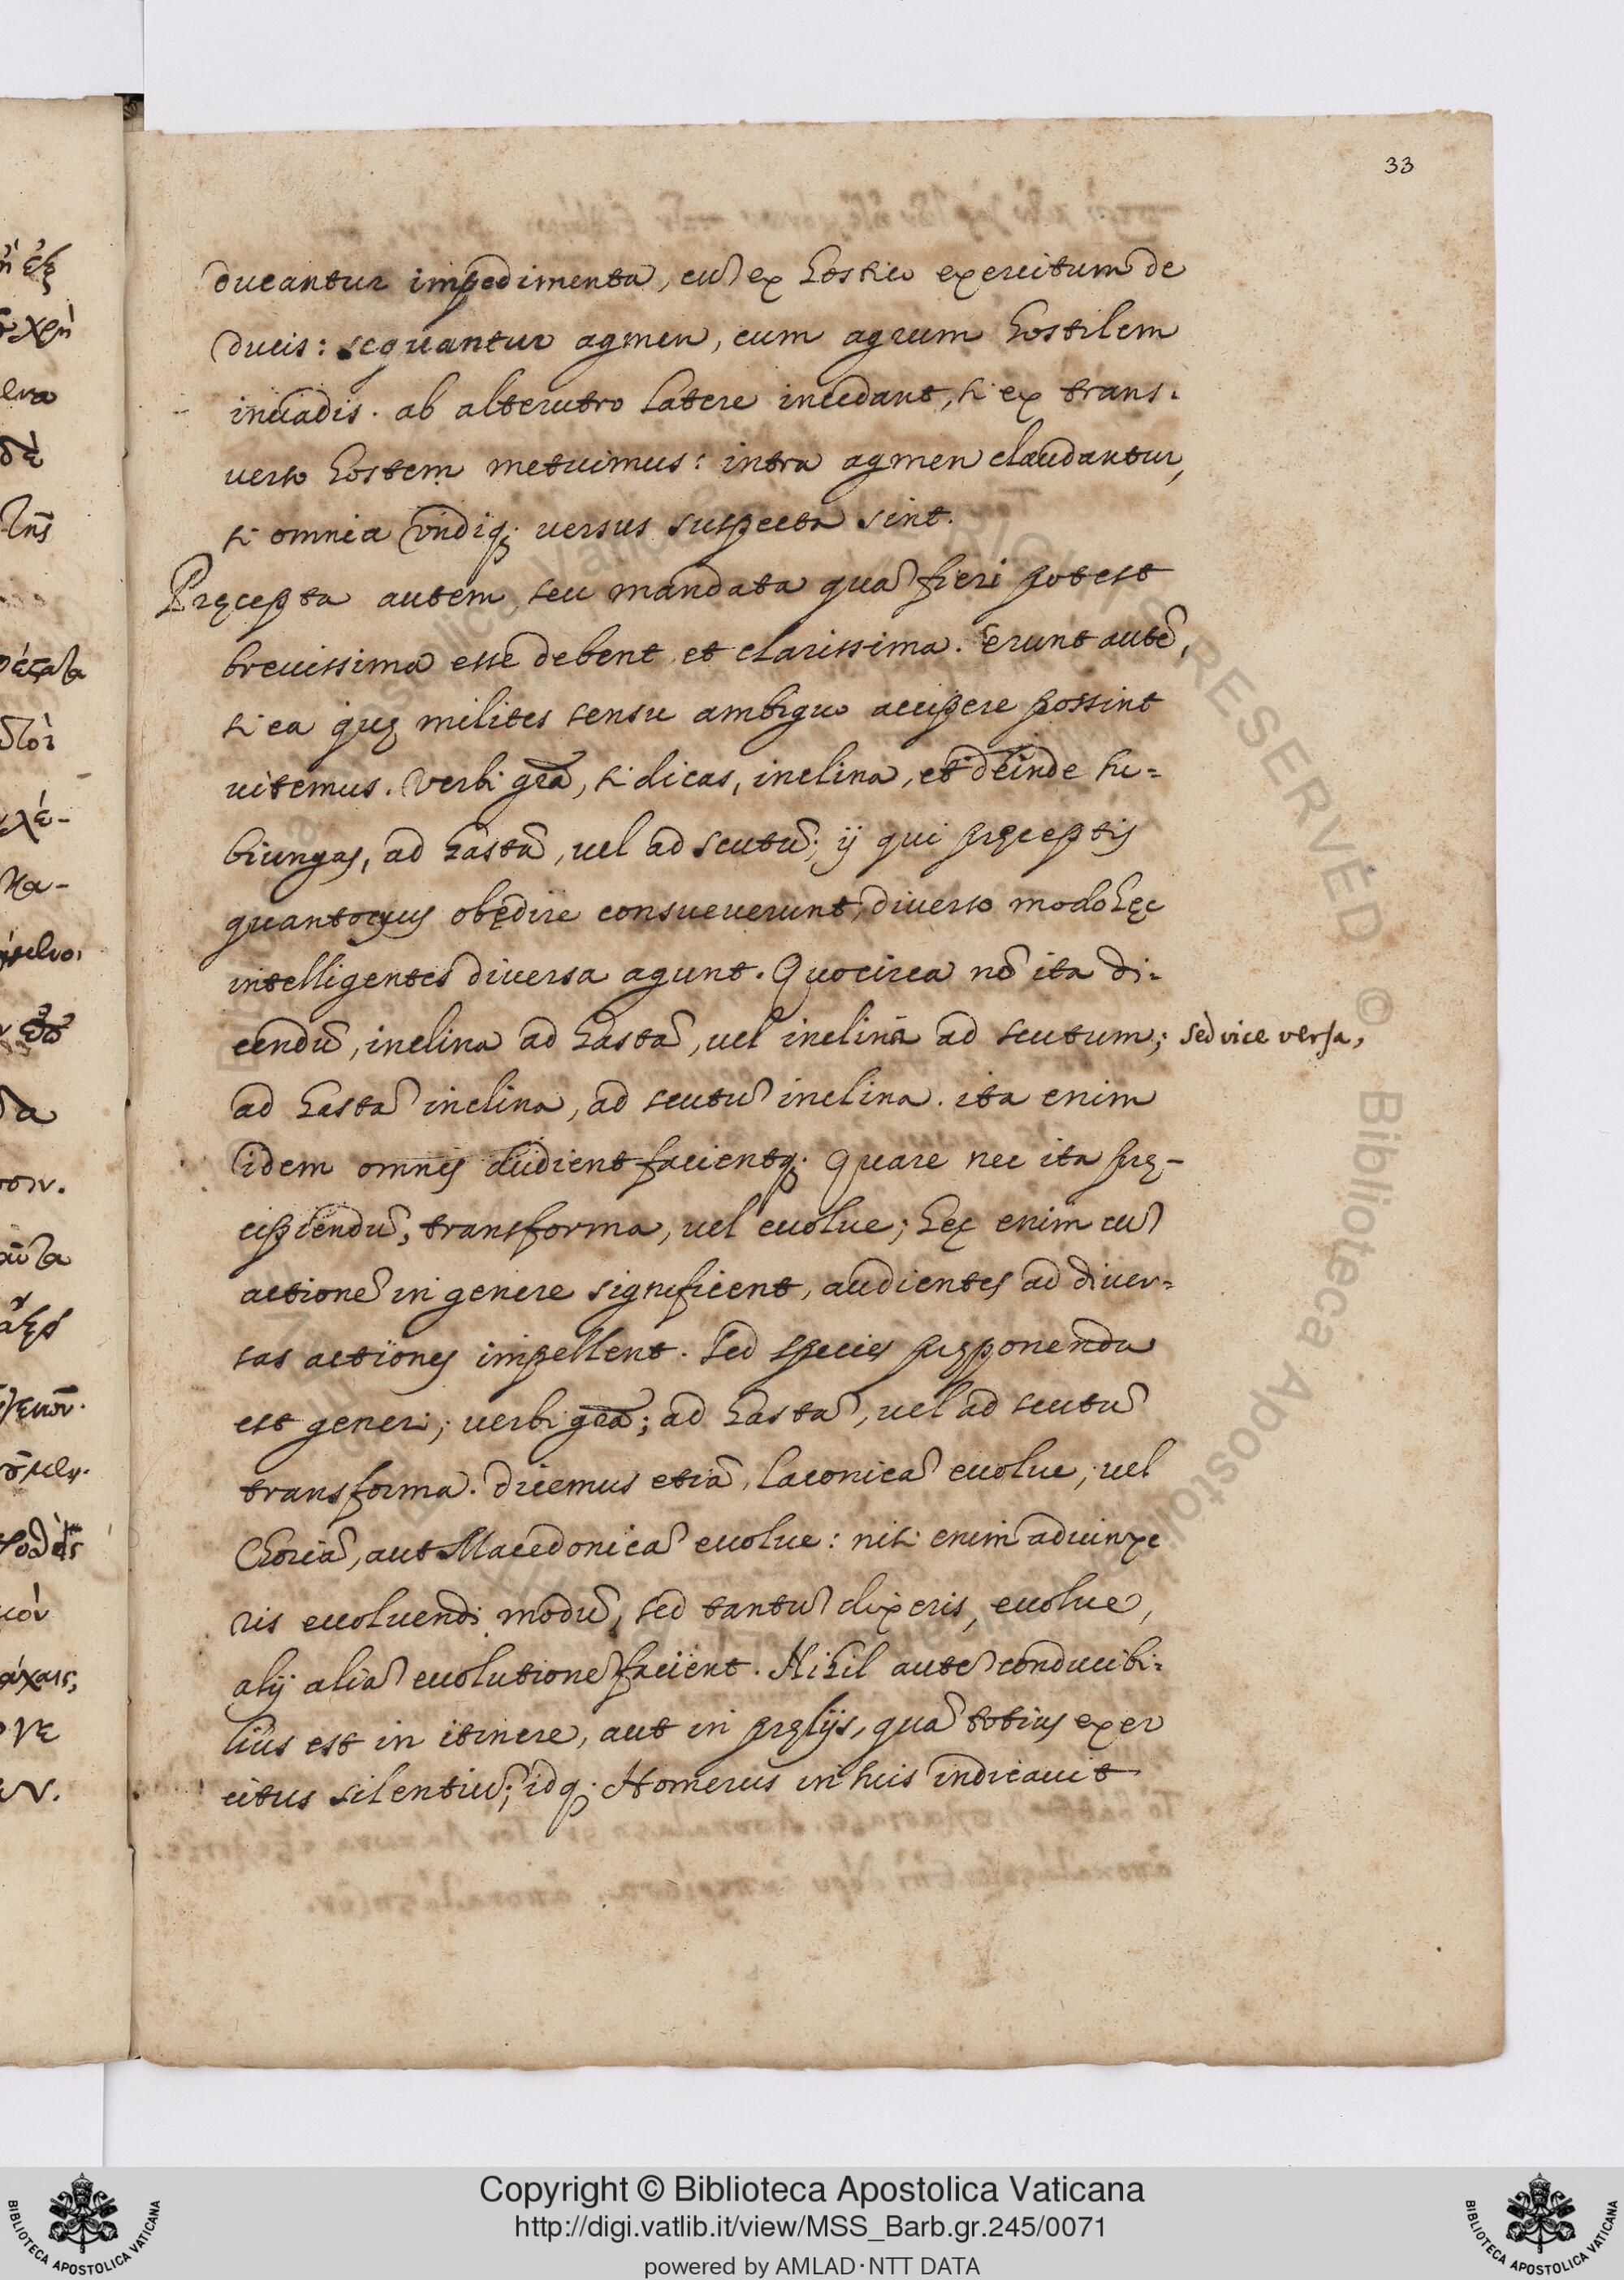 33
ducantur impedimenta, cũ ex hostico exercitum de
ducis: sequantur agmen, cum agrum hostilem
inuadis. ab alterutro latere incedant, si ex trans-
uerso hostem metuimus: intra agmen claudantur,
si omnia vndiq; versus suspecta sint.
Pręcepta autem seu mandata quã fieri potest
breuissima esse debent et clarissima. erunt autẽ,
si ea quę milites sensu ambiguo accipere possint
uitemus. verbi grã, si dicas, inclina, et deinde su-
biungas, ad hastã, uel ad scutũ; ij qui pręceptis
quantocyus obędire consueuerunt, diuerso modo hęc
intelligentes diuersa agunt. Quocirca nõ ita di-
cendũ, inclina ad hastã, uel inclina ad scutum; sed vice versa,
ad hastã inclina, ad scutũ inclina. ita enim
idem omnes audient facientq; Quare nec ita prę-
cipiendũ, transforma, uel euolue; hęc enim cũ
actionẽ in genere significent, audientes ad diuer-
sas actiones impellent. Sed species pręponenda
est generi; uerbi grã; ad hastã, uel ad scutũ
transforma. dicemus etiã, laconicã euolue, uel
Choriã, aut Macedonicã euolue: nisi enim adiunxe
ris euoluendi modũ, sed tantũ dixeris, euolue,
alij aliã euolutionẽ facient. Nihil autẽ conducibi-
lius est in itinere, aut in pręlijs, quã totius exer
citus silentiũ; idq; Homerus in suis indicauit
Copyright © Biblioteca Apostolica Vaticana
http://digi.vatlib.it/view/MSS_Barb.gr.245/0071
powered by AMLAD·NTT DATA
BIBLIOTECA APOSTOLICA VATICANA
BIBLIOTECA APOSTOLICA VATICANA